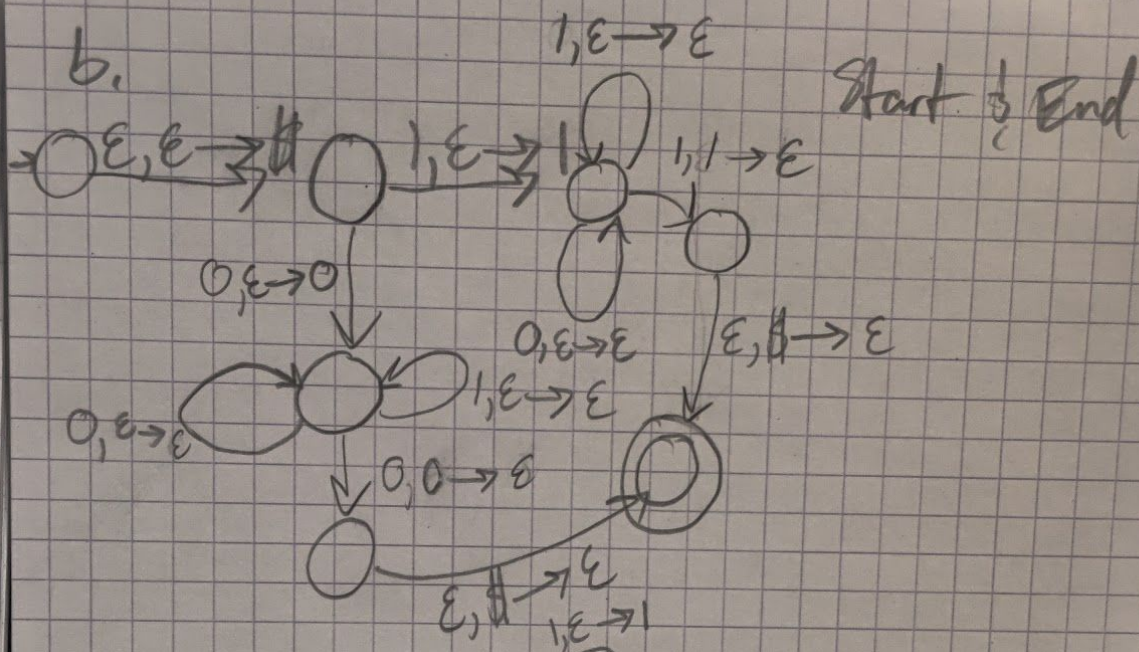 1,ε→ε
b.
Start & End
ε,ε→$
1,ε→1
1,1→ε
0,ε→0
ε,$→ε
0,ε→ε
1,ε→ε
0,ε→ε
0,0→ε
ε,$→ε
1,ε→1